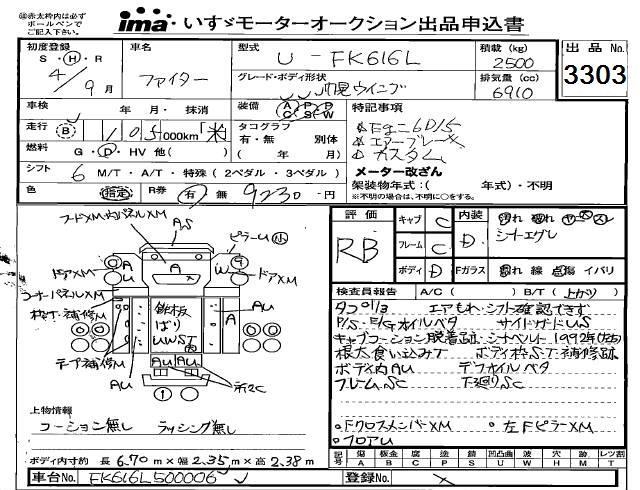 ㊟赤太枠内は必ず
ボールペンで
ご記入下さい。
ima いすゞモーターオークション出品申込書
初度登録
S・H・R
4/9月
車名
ファイター
型式
U-FK616L
グレード・ボディ形状
幌ウイング
積載(kg)
2500
排気量(cc)
6910
出品No.
3303
車検 年・月・抹消
走行 B 105,000km
燃料 G・D・HV 他( )
シフト 6 M/T・A/T・特殊(2ペダル・3ペダル)
色 R券 有・無 9230-円
装備 A/C P/S P/W
タコグラフ
有・無 別体
( 年/ 月)
特記事項
Eg=6D15
エアーブレーキ
カスタム
メーター改ざん
架装物年式:( 年式)・不明
※不明の場合は、不明に○をする。
評価
RB
キャブ C
フレーム C
ボディ D
内装 D
切れ 破れ ヤニ スレ
シートエグレ
Fガラス 割れ 線 点傷 イバリ
検査員報告 A/C( ) B/T(上がり)
タコ01/3 エアもれ・シフト確認できず
P/S・E/Gオイルベタ サイドガードUS
キャブコーション脱着跡・シナベルト 1992年
根太食い込みT ボディ枠ST補修跡
ボディ内AU デフオイルベタ
フレームSC 下廻りSC
・FクロスメンバーXM ・左FピラーXM
・フロアU
フードXM内パネルXM
AS
ピラーU
ドアXM
A
U
A
W
ドアXM
コーナーパネルXM
枠T・補修M
鉄板
ばり
UWST
A
AU
テープ補修M
AU
AU
AU
1
上物情報
コーション無し ラッシング無し
ボディ内寸約 長6.70m×幅2.35m×高2.38m
記号 傷A 板金B 腐C 塗P 錆S 凹凸曲U W 穴H 跡M レツ割T
車台No. FK616L500006
登録No.